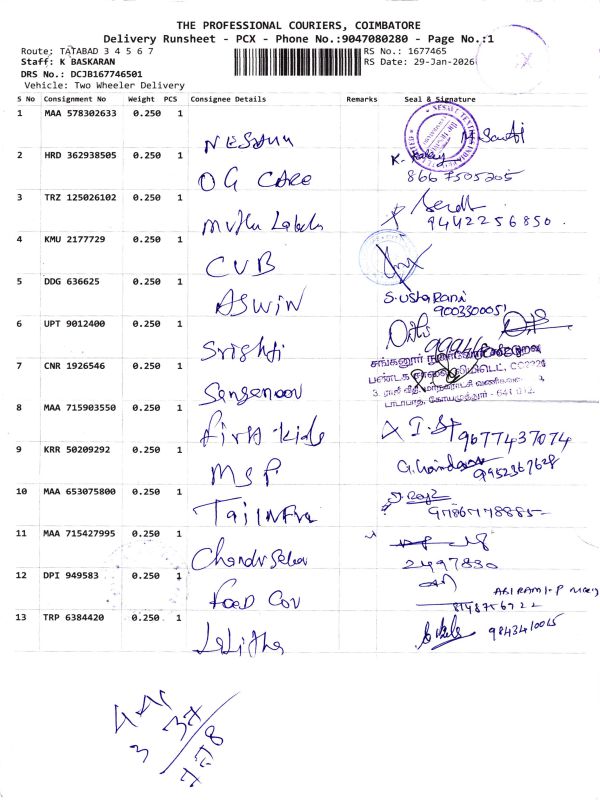 THE PROFESSIONAL COURIERS, COIMBATORE
Delivery Runsheet - PCX - Phone No.:9047080280 - Page No.:1
Route: TATABAD 3 4 5 6 7
RS No.: 1677465
Staff: K BASKARAN
RS Date: 29-Jan-2026
DRS No.: DCJB167746501
Vehicle: Two Wheeler Delivery
S No Consignment No Weight PCS Consignee Details Remarks Seal & Signature
1 MAA 578302633 0.250 1
2 HRD 362938505 0.250 1 OG CARE 8667505205
3 TRZ 125026102 0.250 1 Muthu Labels 9442256850
4 KMU 2177729 0.250 1 CUB
5 DDG 636625 0.250 1 ASWIN S. Usha Rani 9003300051
6 UPT 9012400 0.250 1 Srishti
7 CNR 1926546 0.250 1
8 MAA 715903550 0.250 1 First kids 9677437074
9 KRR 50209292 0.250 1 MSP 9952367628
10 MAA 653075800 0.250 1 Taj Infra 9786778885
11 MAA 715427995 0.250 1 Chandrsekar 2497830
12 DPI 949583 0.250 1 8148756722
13 TRP 6384420 0.250 1 Lalitha 9843410015